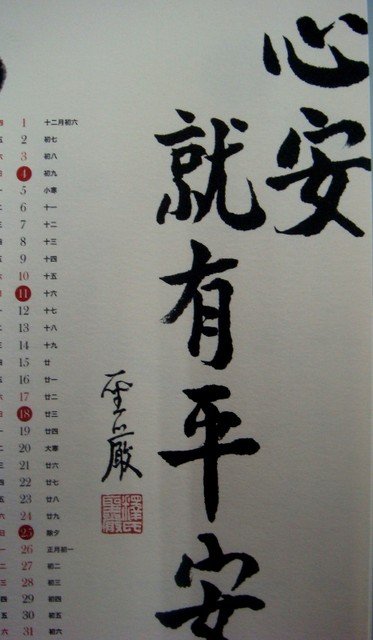 心安
就有平安
聖嚴
1 十二月初六
2 初七
3 初八
4 初九
5 小寒
6 十一
7 十二
8 十三
9 十四
10 十五
11 十六
12 十七
13 十八
14 十九
15 廿
16 廿一
17 廿二
18 廿三
19 廿四
20 大寒
21 廿六
22 廿七
23 廿八
24 廿九
25 除夕
26 正月初一
27 初二
28 初三
29 初四
30 初五
31 初六